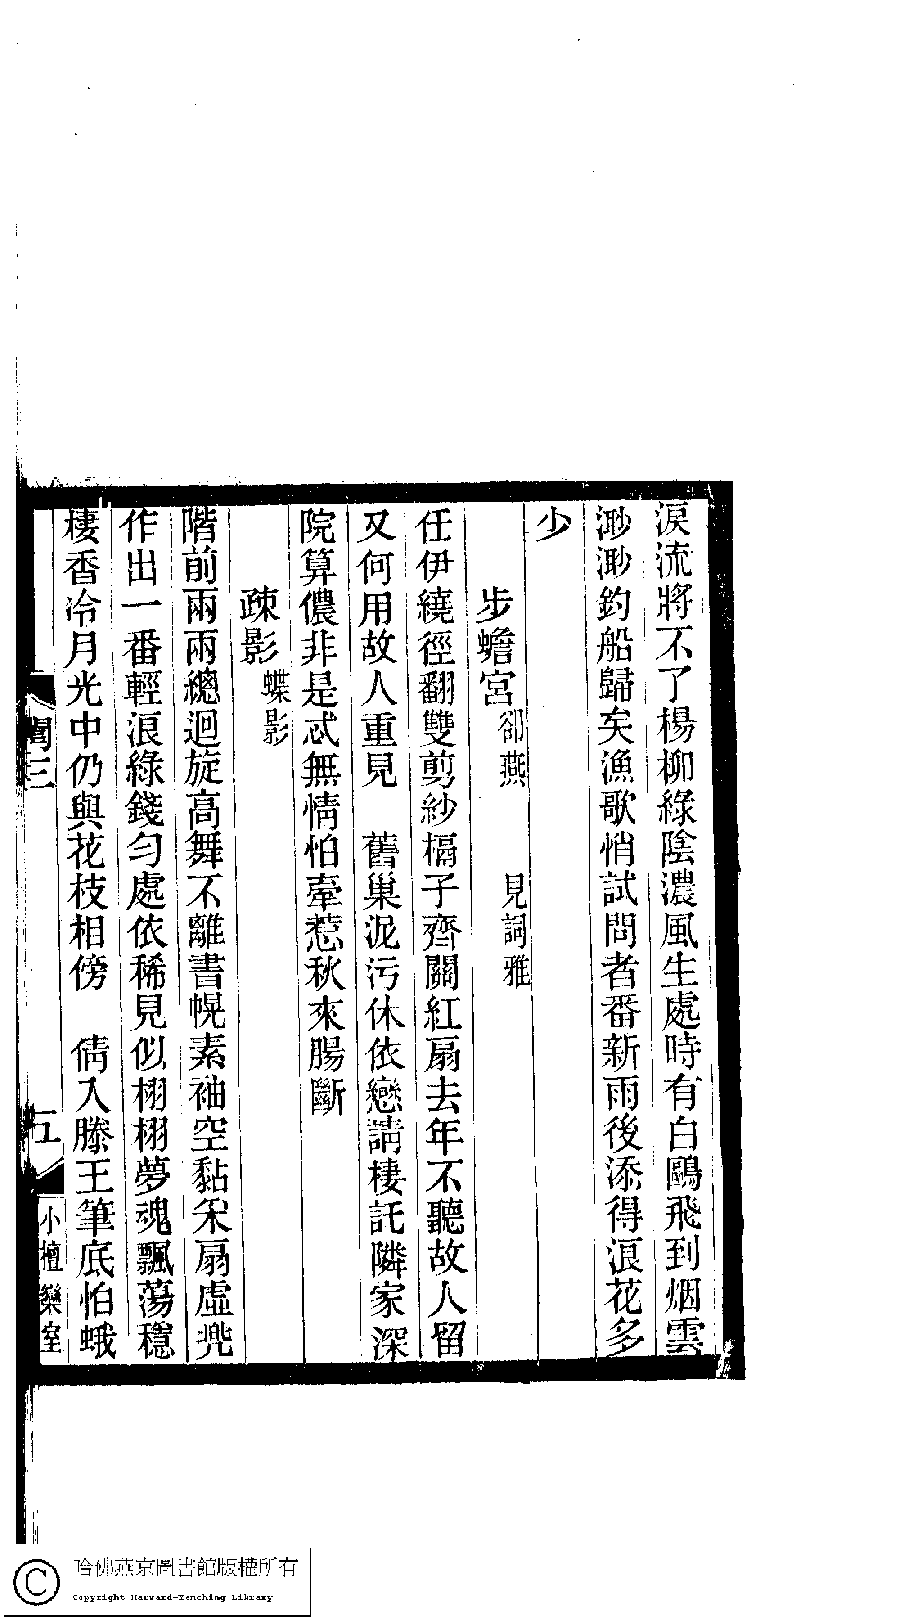 淚流將不了楊柳綠陰濃風生處時有白鷗飛到烟雲
渺渺釣船歸矣漁歌悄試問者番新雨後添得浪花多
少
步蟾宮 卻燕 見詞雅
任伊繞徑翻雙剪紗槅子齊關紅扇去年不聽故人留
又何用故人重見 舊巢泥污休依戀請棲託隣家深
院算儂非是忒無情怕牽惹秋來腸斷
疎影 蝶影
階前兩兩總迴旋高舞不離書幌素袖空黏宋扇虛兠
作出一番輕浪綠錢勻處依稀見似栩栩夢魂飄蕩穩
棲香冷月光中仍與花枝相傍 倩入滕王筆底怕蛾
閨三
五
小檀欒室
哈佛燕京圖書館版權所有
Copyright Harvard-Yenching Library